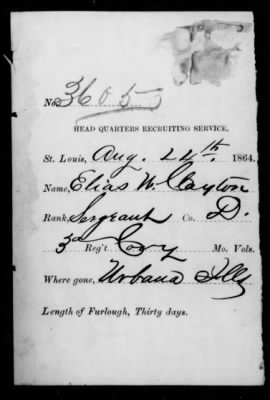 No. 3605
HEAD QUARTERS RECRUITING SERVICE.
St. Louis, Aug. 24th. 1864.
Name, Elias W. Clayton
Rank, Sergeant Co. D.
3d Reg't Cavy Mo. Vols.
Where gone, Urbana Ills
Length of Furlough, Thirty days.